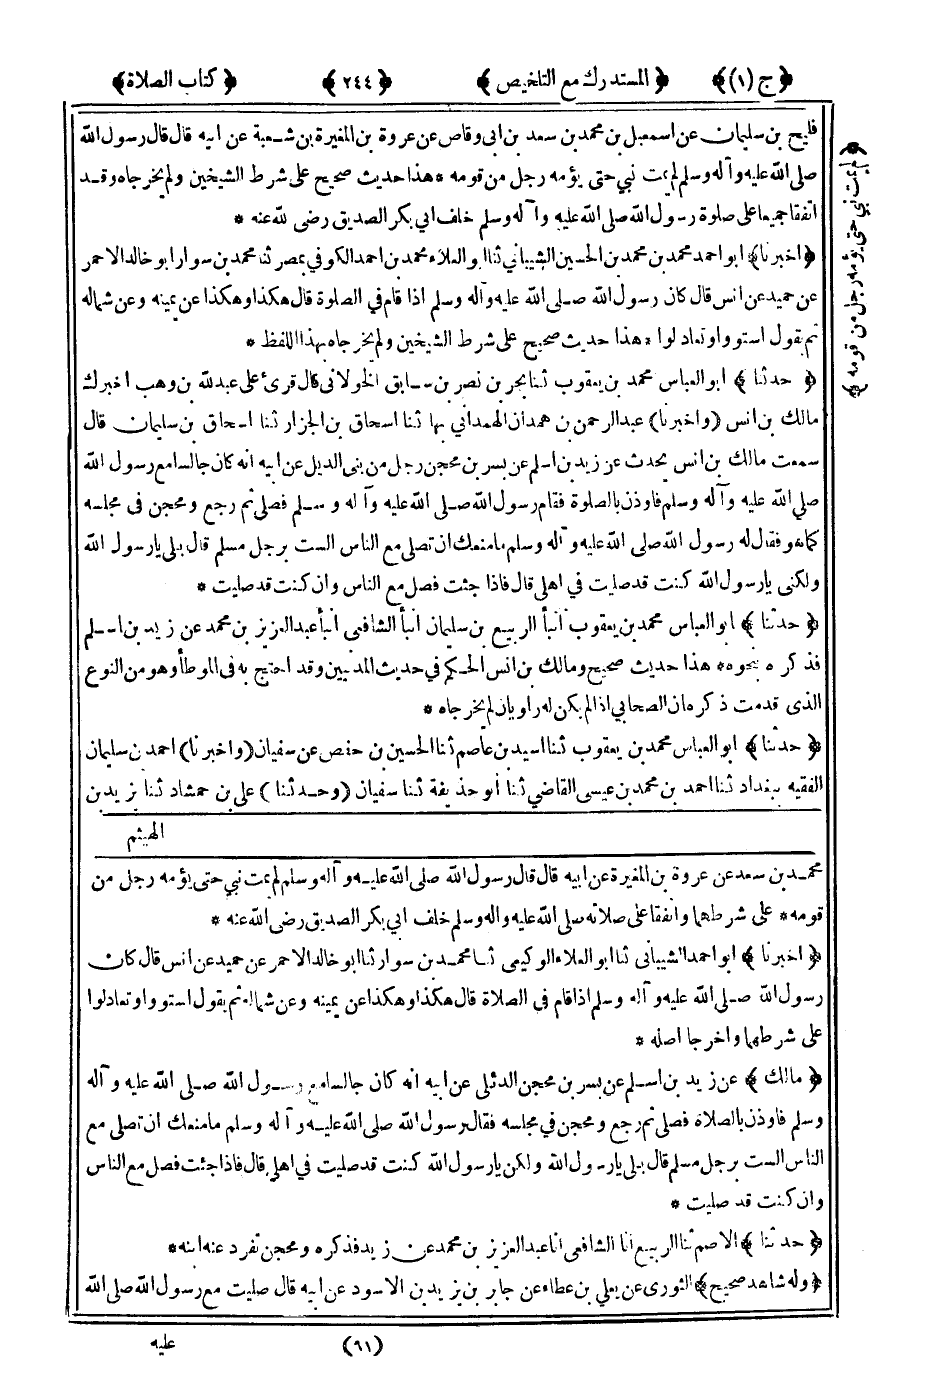 ﴿ ج (١) ﴾ ﴿ المستدرك مع التلخيص ﴾ ﴿ ٢٤٤ ﴾ ﴿ كتاب الصلاة ﴾
فليح بن سليمان عن اسمعيل بن محمد بن سعد بن ابى وقاص عن عروة بن المغيرة بن شعبة عن ابيه قال قال رسول الله
صلى الله عليه وآله وسلم لم يمت نبي حتى يؤمه رجل من قومه * هذا حديث صحيح على شرط الشيخين ولم يخرجاه وقد
اتفقا جميعا على صلوة رسول الله صلى الله عليه وآله وسلم خلف ابى بكر الصديق رضى لله عنه *
﴿ اخبرنا ﴾ ابو احمد محمد بن محمد بن الحسين الشيباني ثنا ابو العلاء محمد بن احمد الكوفي بمصر ثنا محمد بن سوار ابو خالد الاحمر
عن حميد عن انس قال كان رسول الله صلى الله عليه وآله وسلم اذا قام في الصلوة قال هكذا وهكذا عن يمينه وعن شماله
ثم يقول استووا وتعادلوا * هذا حديث صحيح على شرط الشيخين ولم يخرجاه بهذا اللفظ *
﴿ حدثنا ﴾ ابو العباس محمد بن يعقوب ثنا بحر بن نصر بن سابق الخولانى قال قرئ على عبدلله بن وهب اخبرك
مالك بن انس (واخبرنا) عبدالرحمن بن همدان الهمداني بها ثنا اسحاق بن الجزار ثنا اسحاق بن سليمان قال
سمعت مالك بن انس يحدث عن زيد بن اسلم عن بسر بن محجن رجل من بنى الديل عن ابيه انه كان جالسا مع رسول الله
صلى الله عليه وآله وسلم فاوذن بالصلوة فقام رسول الله صلى الله عليه وآله وسلم فصلى ثم رجع ومحجن فى مجلسه
كما هو فقال له رسول الله صلى الله عليه وآله وسلم ما منعك ان تصلى مع الناس الست برجل مسلم قال بلى يا رسول الله
ولكنى يا رسول الله كنت قد صليت في اهلى قال فاذا جئت فصل مع الناس وان كنت قد صليت *
﴿ حدثنا ﴾ ابو العباس محمد بن يعقوب أنبأ الربيع بن سليمان أنبأ الشافعى أنبأ عبدالعزيز بن محمد عن زيد بن اسلم
فذكره بنحوه * هذا حديث صحيح ومالك بن انس الحكم في حديث المدنيين وقد احتج به فى الموطأ وهو من النوع
الذى قدمت ذكره ان الصحابي اذا لم يكن له راويان لم يخرجاه *
﴿ حدثنا ﴾ ابو العباس محمد بن يعقوب ثنا اسيد بن عاصم ثنا الحسين بن حفص عن سفيان (واخبرنا) احمد بن سليمان
الفقيه ببغداد ثنا احمد بن محمد بن عيسى القاضي ثنا أبو حذيفة ثنا سفيان (وحدثنا) على بن حمشاد ثنا يزيد بن
الهيثم
محمد بن سعد عن عروة بن المغيرة عن ابيه قال قال رسول الله صلى الله عليه وآله وسلم لم يمت نبي حتى يؤمه رجل من
قومه * على شرطهما واتفقا على صلاته صلى الله عليه واله وسلم خلف ابي بكر الصديق رضى الله عنه *
﴿ اخبرنا ﴾ ابو احمد الشيبانى ثنا ابو العلاء الوكيعى ثنا محمد بن سوار ثنا ابو خالد الاحمر عن حميد عن انس قال كان
رسول الله صلى الله عليه وآله وسلم اذا قام فى الصلاة قال هكذا وهكذا عن يمينه وعن شماله ثم يقول استووا وتعادلوا
على شرطهما واخرجا اصله *
﴿ مالك ﴾ عن زيد بن اسلم عن بسر بن محجن الدئلى عن ابيه انه كان جالسا مع رسول الله صلى الله عليه وآله
وسلم فاوذن بالصلاة فصلى ثم رجع ومحجن في مجلسه فقال رسول الله صلى الله عليه وآله وسلم ما منعك ان تصلى مع
الناس الست برجل مسلم قال بلى يا رسول الله ولكن يا رسول الله كنت قد صليت في اهلى قال فاذا جئت فصل مع الناس
وان كنت قد صليت *
﴿ حدثنا ﴾ الاصم ثنا الربيع انا الشافعى انا عبد العزيز بن محمد عن زيد فذكره ومحجن تفرد عنه ابنه *
﴿ وله شاهد صحيح ﴾ الثورى عن يعلي بن عطاء عن جابر بن يزيد بن الاسود عن ابيه قال صليت مع رسول الله صلى الله
(٦١) عليه
﴿ لم يمت نبي حتى يؤمه رجل من قومه ﴾